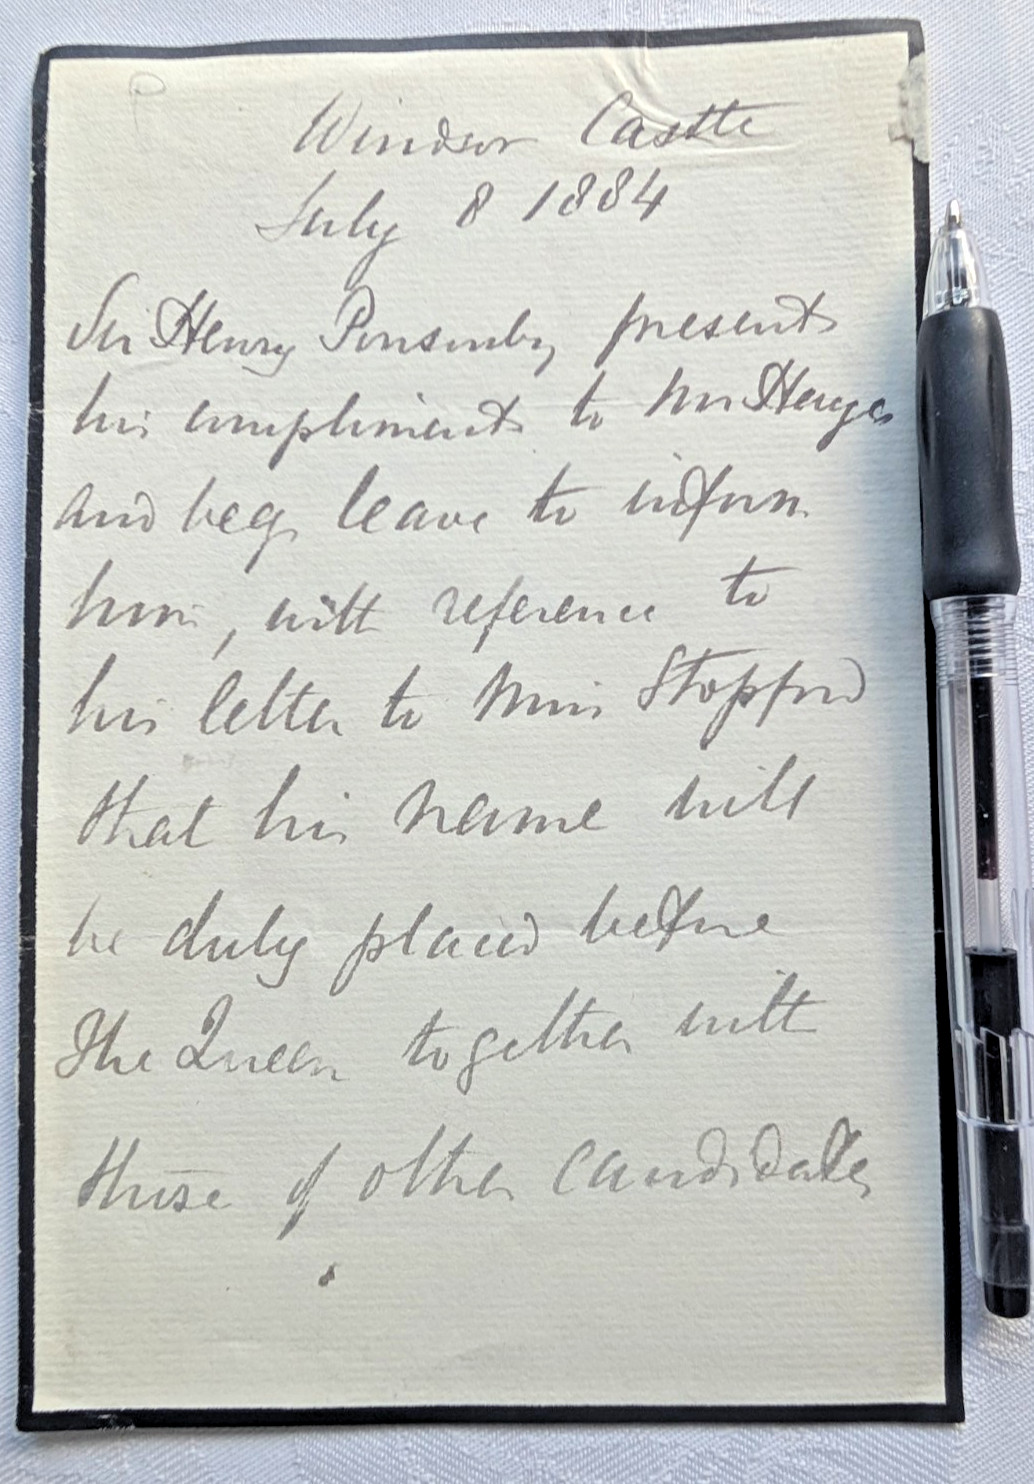 Windsor Castle
July 8 1884
Sir Henry Ponsonby presents
his compliments to Mr Hayes
and begs leave to inform
him, with reference to
his letter to Miss Stopford
that his name will
be duly placed before
The Queen together with
those of other candidates